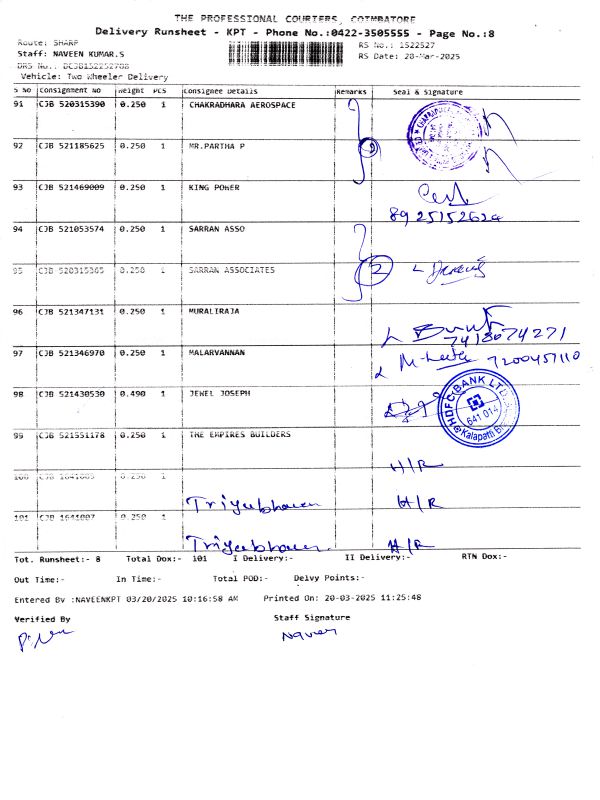 THE PROFESSIONAL COURIERS, COIMBATORE
Delivery Runsheet - KPT - Phone No.:0422-3505555 - Page No.:8
Route: SHARP
RS No.: 1522527
Staff: NAVEEN KUMAR.S
RS Date: 20-Mar-2025
DRS No.:
Vehicle: Two Wheeler Delivery
S No Consignment No Weight PCS Consignee Details Remarks Seal & Signature
91 CJB 520315390 0.250 1 CHAKRADHARA AEROSPACE
92 CJB 521185625 0.250 1 MR.PARTHA P
93 CJB 521469009 0.250 1 KING POWER
8925152624
94 CJB 521053574 0.250 1 SARRAN ASSO
95 CJB 520315365 0.250 1 SARRAN ASSOCIATES 2
96 CJB 521347131 0.250 1 MURALIRAJA
7418674271
97 CJB 521346970 0.250 1 MALARVANNAN
7200457110
98 CJB 521430530 0.490 1 JEWEL JOSEPH
HDFC BANK LTD
641 014
Kalapatti
99 CJB 521551178 0.250 1 THE EMPIRES BUILDERS
H/R
100 CJB 1641005 0.250 1
H/R
101 CJB 1641007 0.250 1
H/R
Tot. Runsheet:- 8 Total Dox:- 101 I Delivery:- II Delivery:- RTN Dox:-
Out Time:- In Time:- Total POD:- Delvy Points:-
Entered By :NAVEENKPT 03/20/2025 10:16:58 AM Printed On: 20-03-2025 11:25:48
Verified By Staff Signature
Naveen